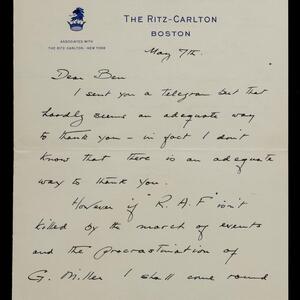 THE RITZ-CARLTON
BOSTON
ASSOCIATED WITH
THE RITZ CARLTON · NEW YORK
May 7th.
Dear Ben
I sent you a telegram but that
hardly seems an adequate way
to thank you – in fact I don't
know that there is an adequate
way to thank you.
However if "R.A.F" isn't
killed by the march of events
and the procrastination of
G. Miller I shall come round